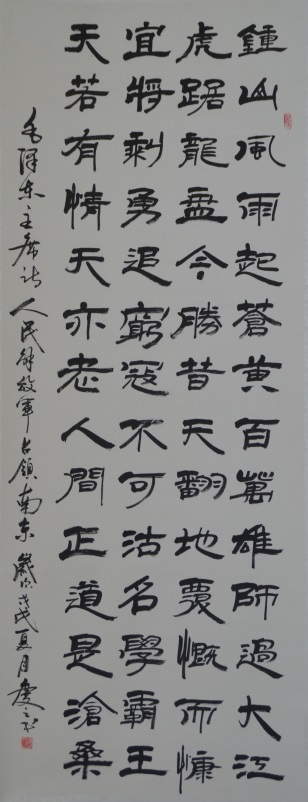 鍾山風雨起蒼黃百萬雄師過大江
虎踞龍盘今勝昔天翻地覆慨而慷
宜将剩勇追窮寇不可沽名學霸王
天若有情天亦老人間正道是滄桑
毛澤东主席詩人民解放軍占領南京歲次戊戌夏月慶之